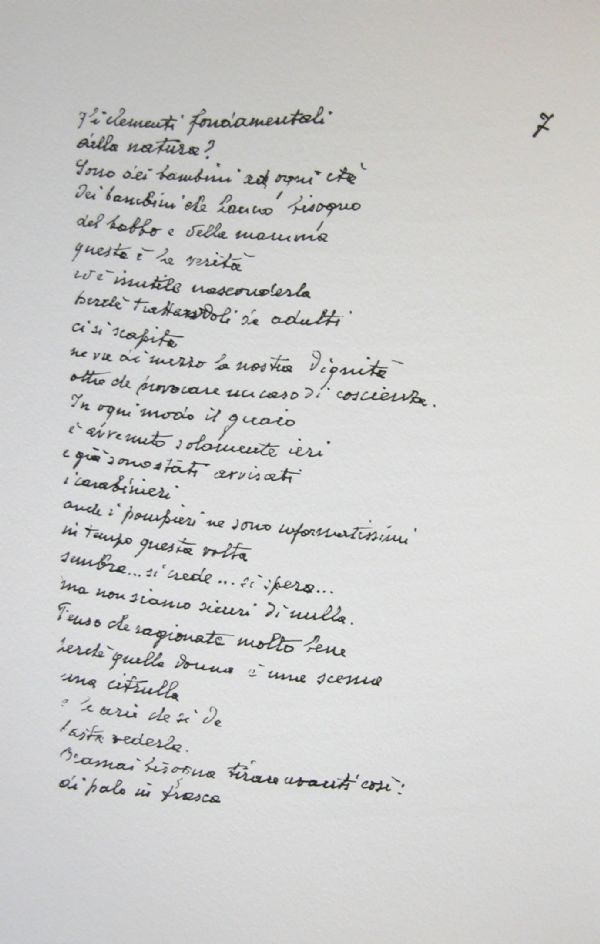 7
Gli elementi fondamentali
della natura?
Sono dei bambini ad ogni età
Dei bambini che hanno bisogno
del babbo e della mamma
questa è la verità
ed è inutile nasconderla
perchè trattandoli da adulti
ci si scapita
ne va di mezzo la nostra dignità
oltre che provocare un caso di coscienza.
In ogni modo il guaio
è avvenuto solamente ieri
e già sono stati avvisati
i carabinieri
anche i pompieri ne sono informatissimi
in tempo questa volta
sembra... si crede... si spera...
ma non siamo sicuri di nulla.
Penso che ragionate molto bene
perchè quella donna è una scema
una citrulla
e le arie che si da
basta vederla.
Oramai bisogna tirare avanti così:
di palo in frasca